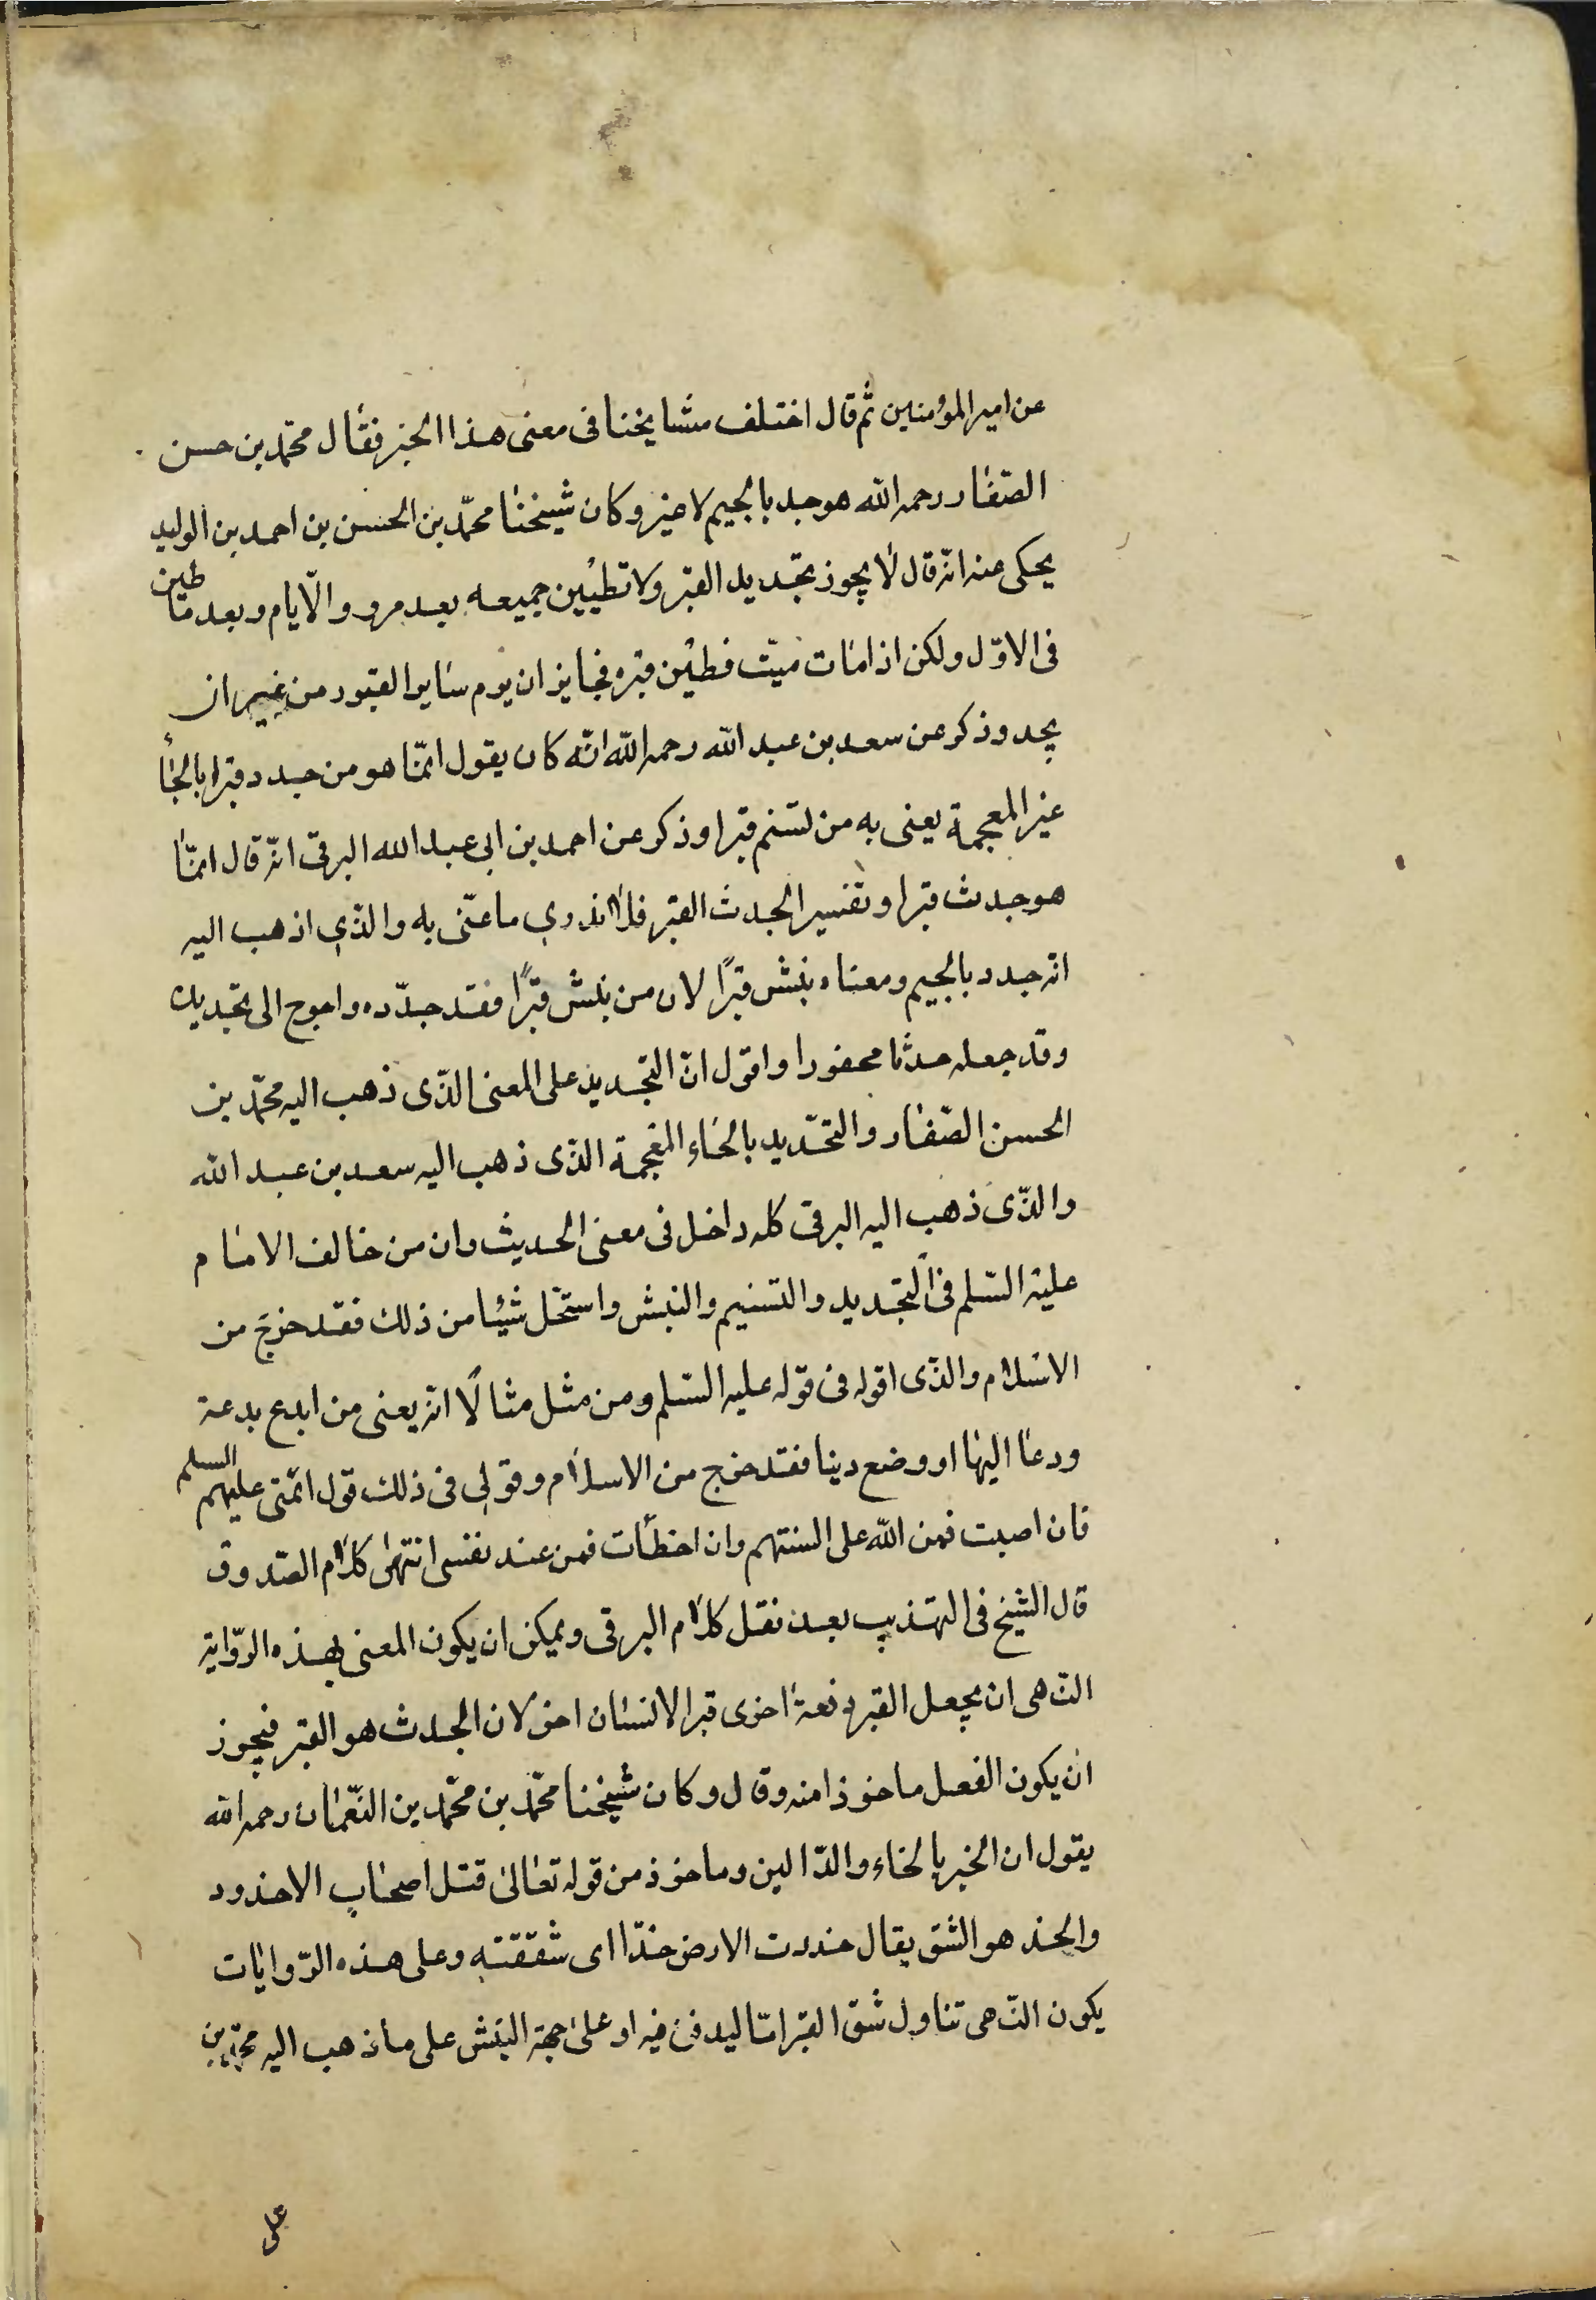 عن امير المؤمنين ثم قال اختلف مشايخنا فى معنى هذا الخبر فقال محمّد بن حسن
الصّفار رحمه الله هو جدد بالجيم لا غير و كان شيخنا محمّد بن الحسن بن احمد بن الوليد
يحكى عنه انّه قال لا يجوز تجديد القبر ولا تطيين جميعه بعد مرور الايّام و بعد ما طين
فى الاوّل ولكن اذا مات ميّت فطيّن قبره فجايز ان يرم ساير القبور من غير ان
يجدد وذكر عن سعد بن عبد الله رحمه الله انّه كان يقول انّما هو من حدد قبرا بالحاء
غير المعجمة يعنى به من تسنم قبرا وذكر عن احمد بن ابى عبد الله البرقى انّه قال انّما
هو جدث قبرا و تفسير الجدث القبر فلا ندرى ما عنّى به والذّى اذهب اليه
انه جدد بالجيم و معناه نبش قبرًا لان من نبش قبرًا فقد جدّده و احوج الى تجديده
وقد جعله جدثا محفورا و اقول انّ التجديد على المعنى الذّى ذهب اليه محمّد بن
الحسن الصّفار والتحّديد بالحاء المعجمة الذّى ذهب اليه سعد بن عبد الله
والذّى ذهب اليه البرقى كله داخل فى معنى الحديث وان من خالف الامام
عليه السّلم فى التجديد والتسنيم والنبش و استحّل شيئا من ذلك فقد خرج من
الاسلام والذّى اقوله فى قوله عليه السّلم و من مثل مثالًا انه يعنى من ابدع بدعة
ودعا اليها او وضع دينا فقد خرج من الاسلام و قولى فى ذلك قول ائمّتى عليهم السلم
فان اصبت فمن الله على السنتهم وان اخطأت فمن عند نفسى انتهى كلام الصّدوق
قال الشيخ فى التهذيب بعد نقل كلام البرقى و يمكن ان يكون المعنى بهذه الرّواية
النّهى ان يجعل القبر دفعة اخرى قبر الانسان اخر لان الجدث هو القبر فيجوز
ان يكون الفعل ماخوذا منه وقال و كان شيخنا محمّد بن محمّد بن النّعمان رحمه الله
يقول ان الخبر بالخاء والدّالين و ماخوذ من قوله تعالى قتل اصحاب الاخدود
والخد هو الشق يقال خددت الارض خدّا اى شققته وعلى هذه الرّوايات
يكون النّهى تناول شق القبر امّا ليدفن فيه او على جهة النبش على ما ذهب اليه محمّد بن
على